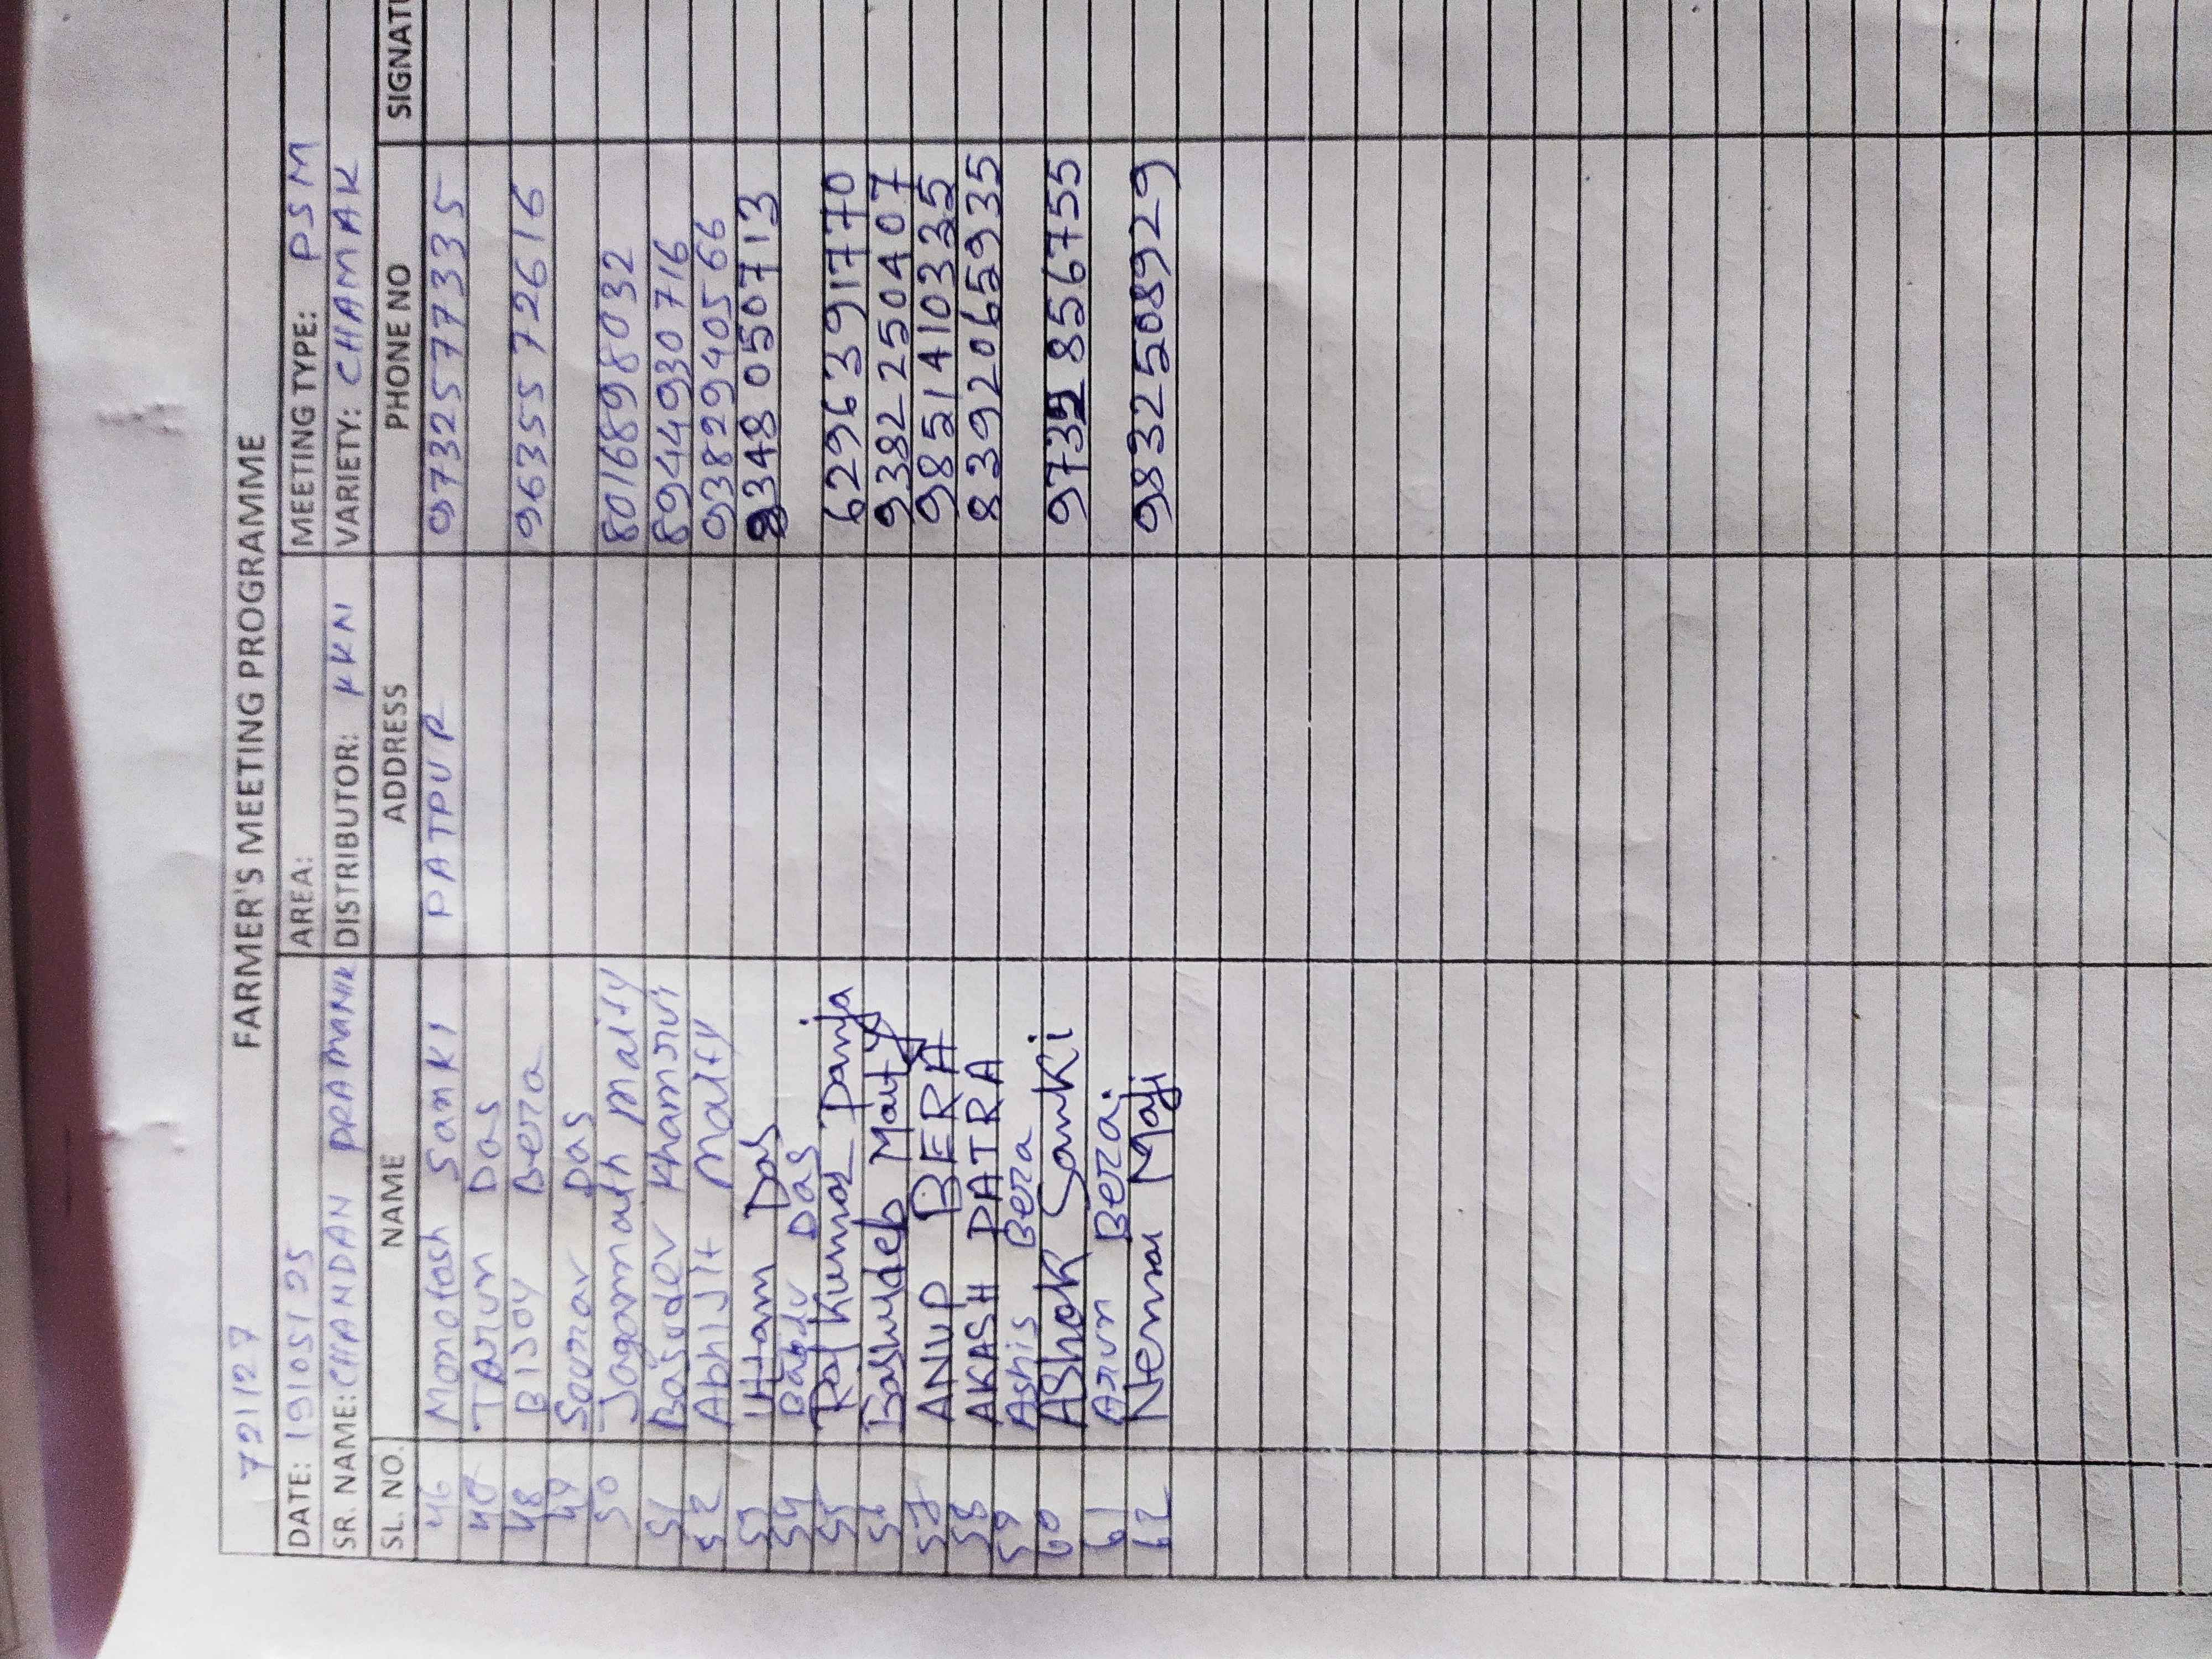 FARMER'S MEETING PROGRAMME
721127
DATE: 19/05/25 AREA: MEETING TYPE: PSM
SR. NAME: CHANDAN PRAMANIK DISTRIBUTOR: KKN VARIETY: CHAMAK
SL. NO. NAME ADDRESS PHONE NO SIGNATU
46 Monotosh Sanki PATPUR 9732577335
47 TArun Das
48 Bijoy Bera 9635572616
49 Sourav Das
50 Jagannath Maity 8016898032
51 Basudev Khamrui 8944930716
52 Abhijit Maity 9382940566
53 Uttam Das 9348050713
54 Bablu Das
55 Raj Kumar Panja 6296391770
56 Basudeb Maity 9382250407
57 ANUP BERA 9851410335
58 AKASH PATRA 8392065935
59 Ashis Bera
60 AShok Sanki 9732856755
61 Arun Bera.
62 Nemai Maji 9832508929